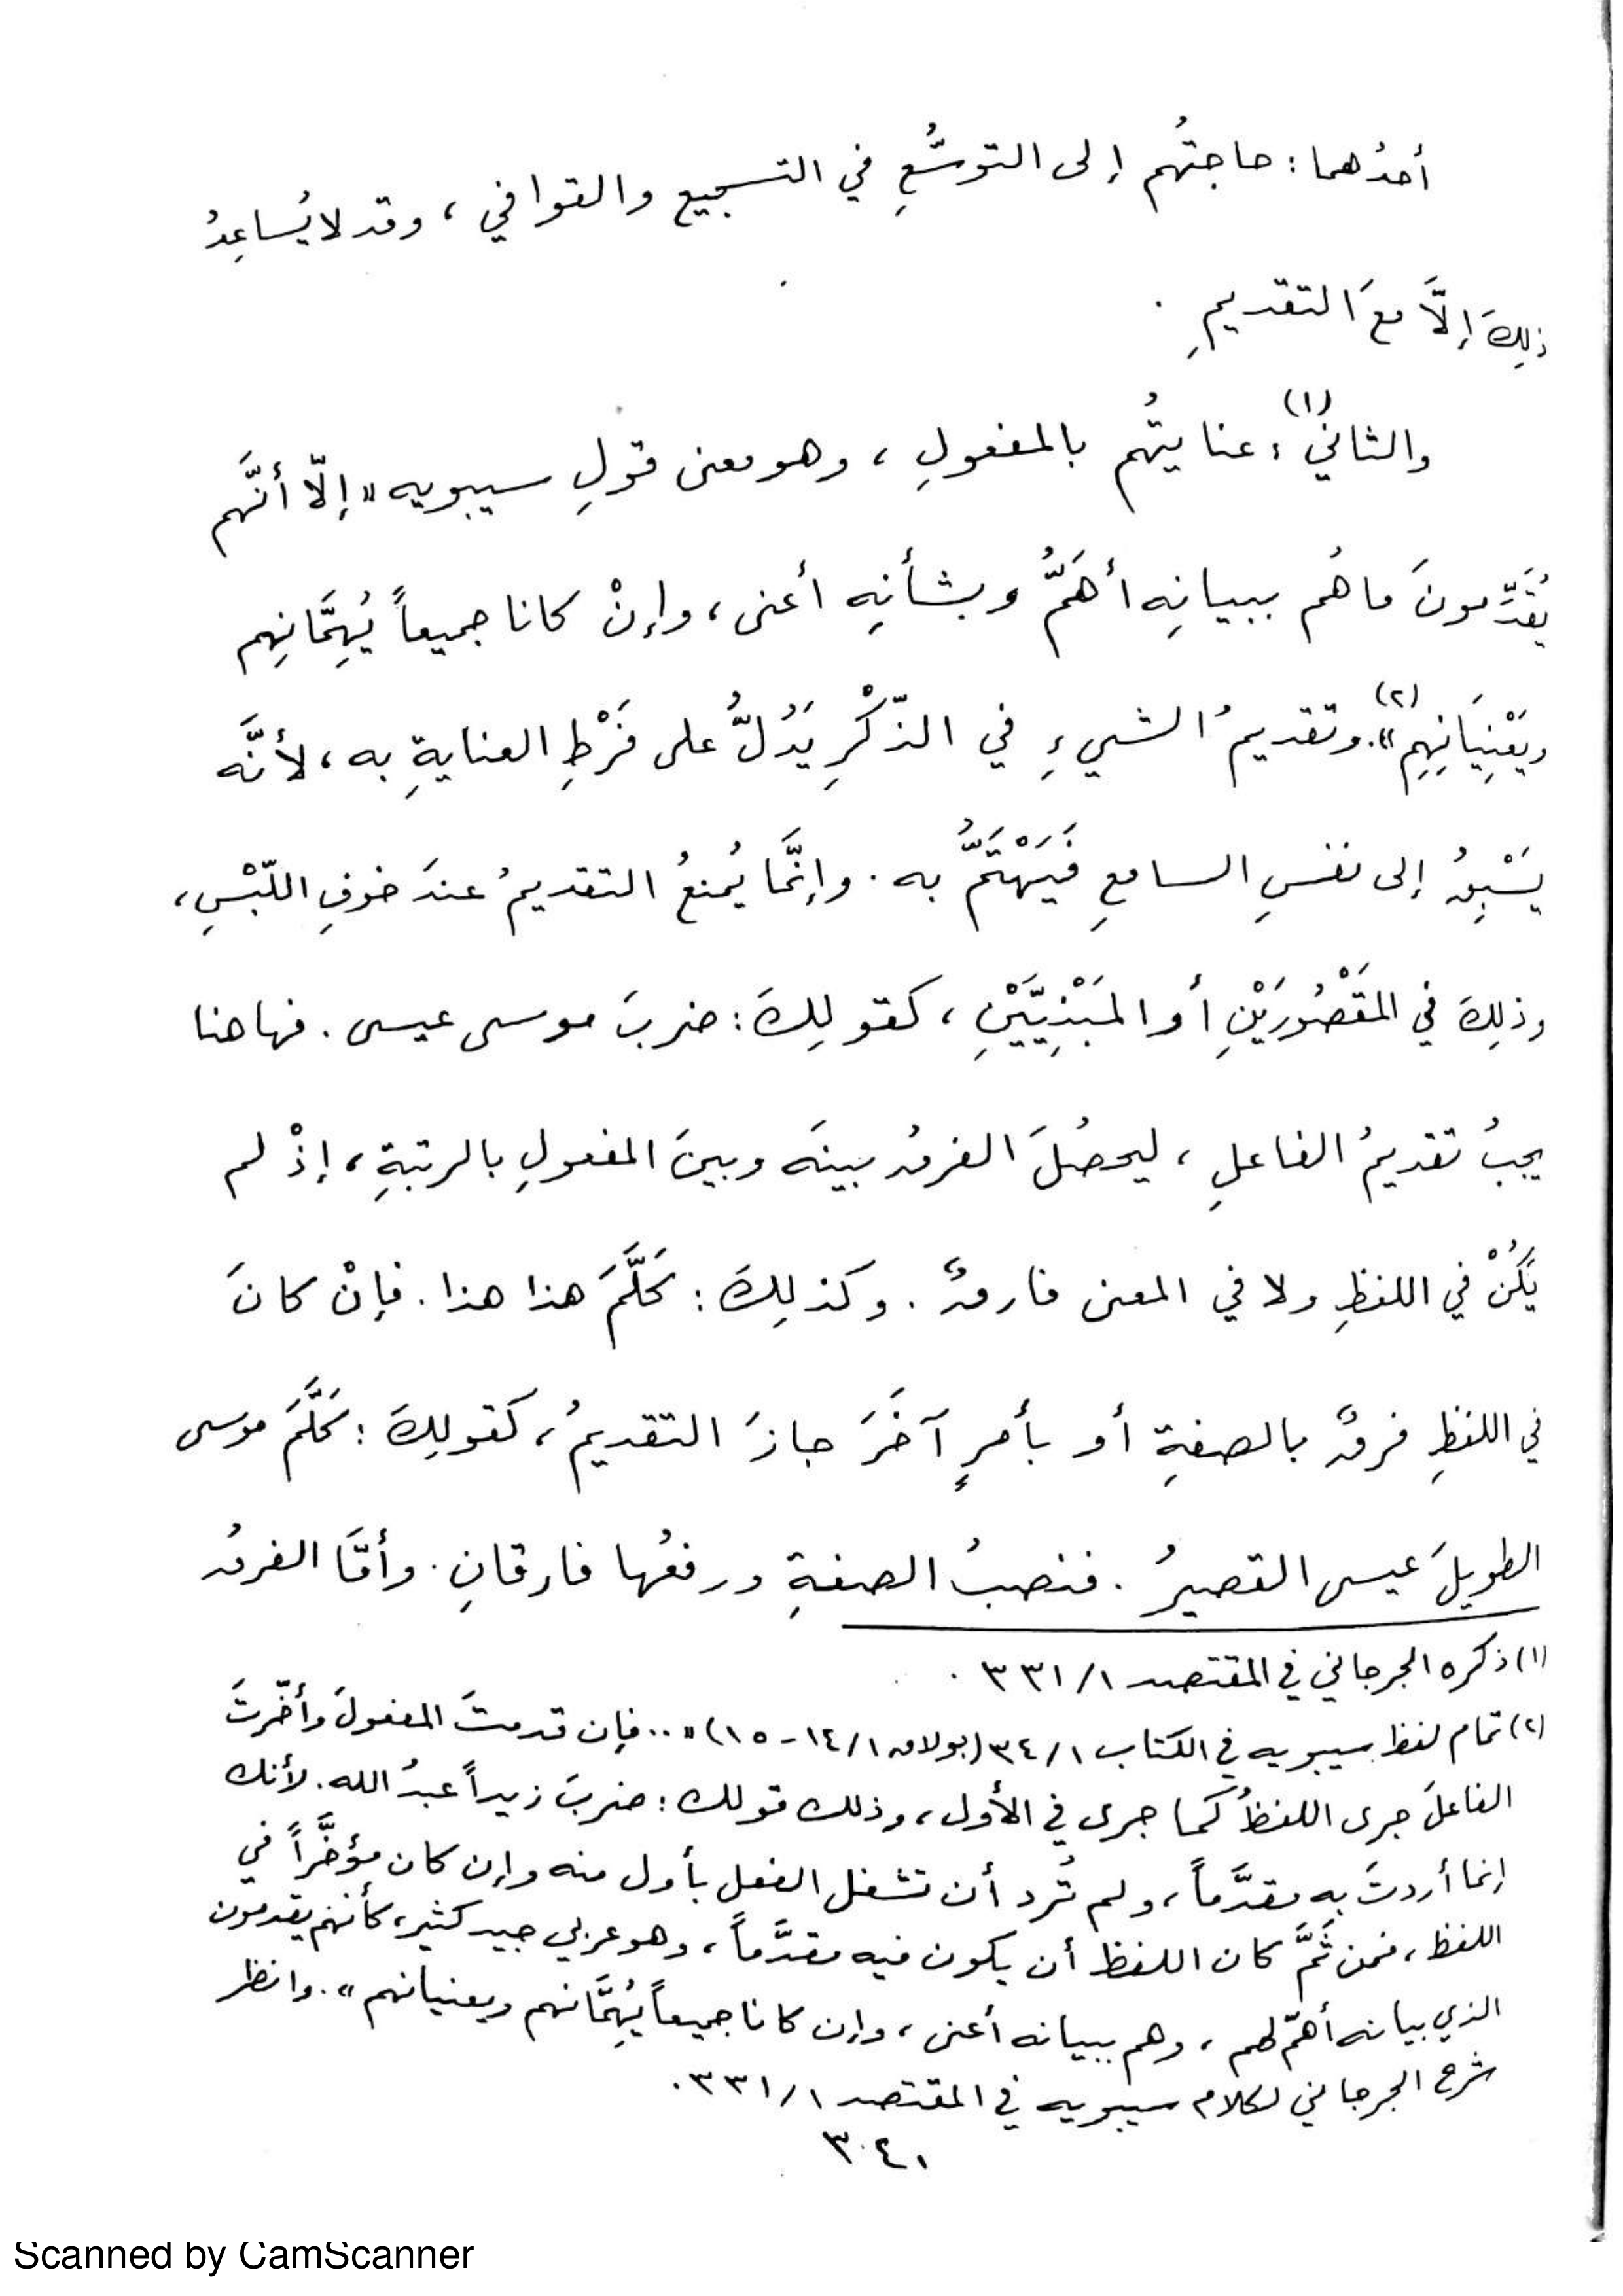 أحدُهما: حاجتُهم إلى التوسُّعِ في التسجيع والقوافي، وقد لا يُساعِدُ
ذلِكَ إلاَّ معَ التقديمِ.
والثاني(١): عنايتُهم بالمفعولِ، وهو معنى قولِ سيبويه «إلّا أنَّهم
يُقَدِّمونَ ما هُم ببيانِه أهَمُّ وبشأنِه أعنى، وإنْ كانا جميعاً يُهِمَّانِهِم
ويَعْنِيَانِهِم»(٢). وتقديمُ الشيءِ في الذّكْرِ يَدُلُّ على فَرْطِ العنايةِ به، لأنَّه
يَسْبِقُ إلى نفسِ السامعِ فَيَهْتَمُّ به. وإنَّما يُمنعُ التقديمُ عندَ خوفِ اللّبْسِ،
وذلِكَ في المَقْصُورَيْنِ أو المَبْنِيَّيْنِ، كقولِكَ: ضربَ موسى عيسى. فهاهنا
يجبُ تقديمُ الفاعلِ، ليحصُلَ الفرقُ بينَه وبينَ المفعولِ بالرتبةِ، إذْ لم
يَكُنْ في اللفظِ ولا في المعنى فارقٌ. وكذلِكَ: كَلَّمَ هذا هذا. فإنْ كانَ
في اللفظِ فرقٌ بالصفةِ أو بأمرٍ آخَرَ جازَ التقديمُ، كقولِكَ: كَلَّمَ موسى
الطويلَ عيسى القصيرُ. فنصبُ الصفةِ ورفعُها فارقانِ. وأمَّا الفرقُ
(١) ذكره الجرجاني في المقتصد ٣٣١/١.
(٢) تمام لفظ سيبويه في الكتاب ٣٤/١ (بولاق ١٤/١-١٥) «.. فإن قدمتَ المفعولَ وأخّرتَ
الفاعلَ جرى اللفظُ كما جرى في الأول، وذلك قولك: ضربَ زيداً عبدُ الله. لأنك
إنما أردتَ به مقدَّماً، ولم تُرد أن تشغل الفعل بأول منه وإن كان مؤخَّراً في
اللفظ، فمن ثَمَّ كان اللفظ أن يكون فيه مقدَّماً، وهو عربي جيد كثير، كأنهم يقدمون
الذي بيانه أهمّ لهم، وهم ببيانه أعنى، وإن كانا جميعاً يُهِمَّانهم ويعنيانهم». وانظر
شرح الجرجاني لكلام سيبويه في المقتصد ٣٣١/١.
٣٠٤١
Scanned by CamScanner